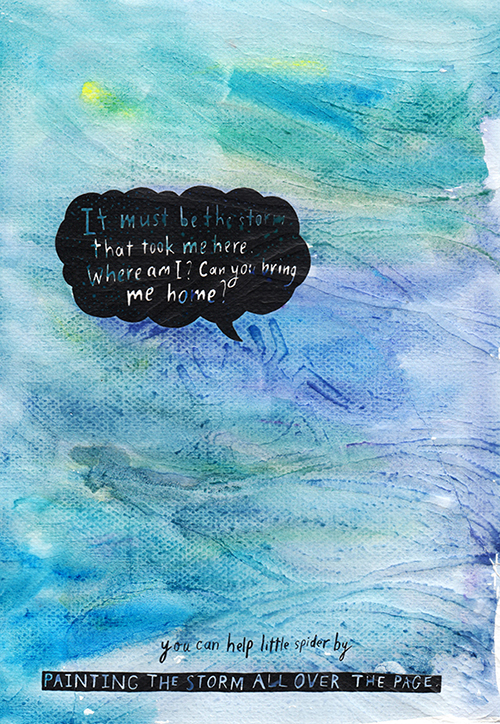 It must be the storm
that took me here.
Where am I? Can you bring
me home?
you can help little spider by
PAINTING THE STORM ALL OVER THE PAGE.